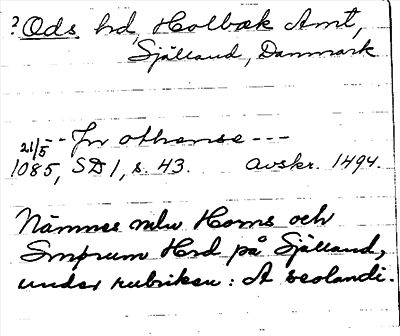 ? Ods hd, Holbæk Amt,
Själland, Danmark
21/5 -- In othense ---
1085, SD 1, s. 43. Avskr. 1494.
Nämnes mlu Horns och
Smørum Hrd på Själland,
under rubriken: A seolandi.